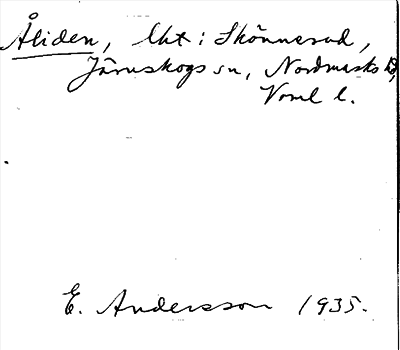 Åliden, lht: Skönnerud,
Järnskogs sn, Nordmarks hd,
Vrml l.
E. Andersson 1935.